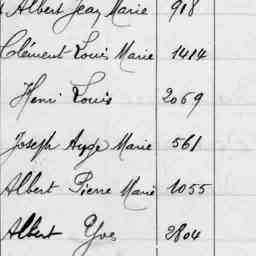 Albert Jean Marie 918
Clément Louis Marie 1414
Henri Louis 2069
Joseph Ange Marie 561
Albert Pierre Marie 1055
Albert Yves 2804